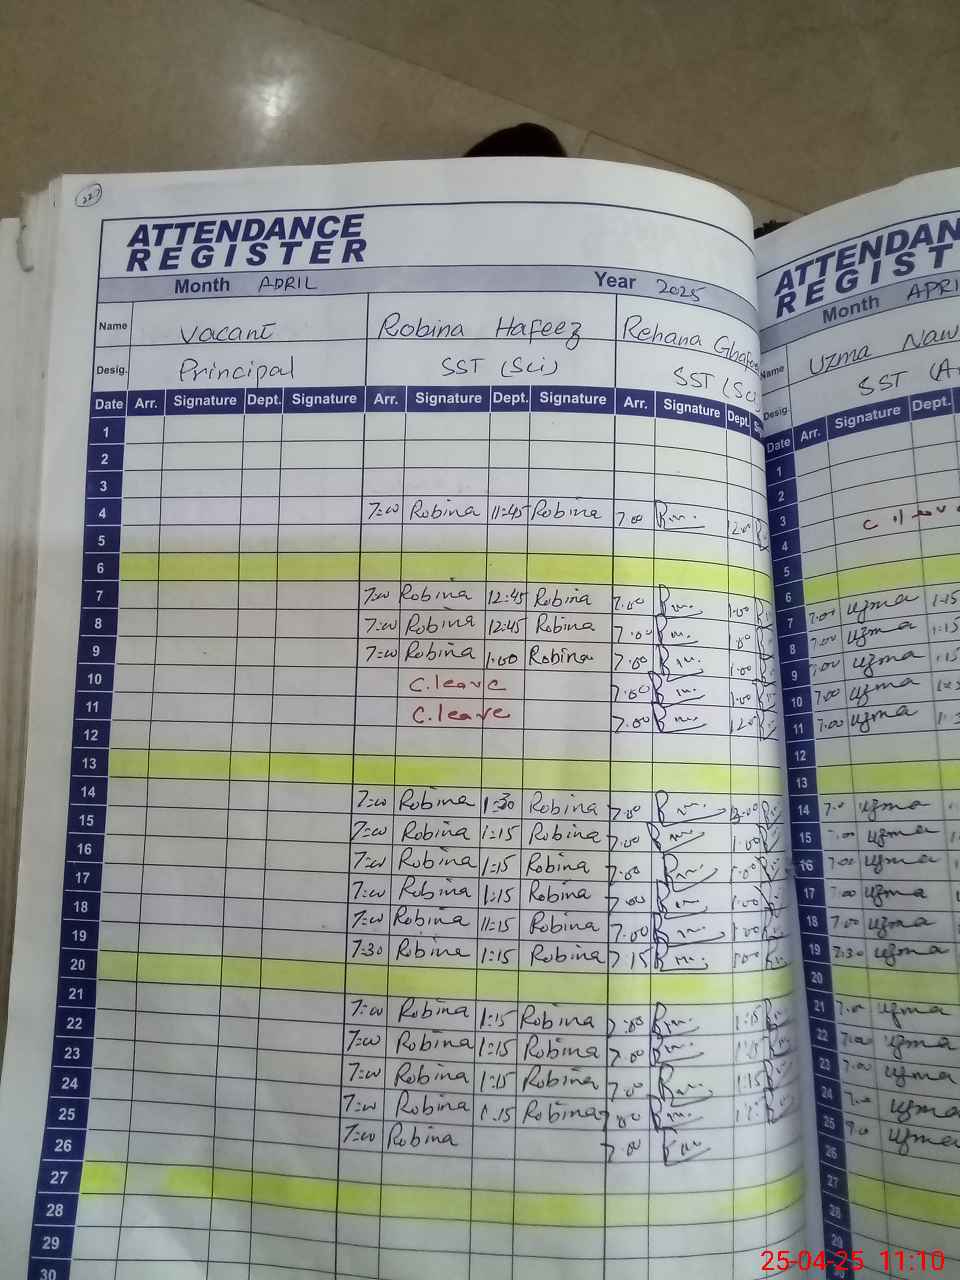 227
ATTENDANCE
REGISTER
Month APRIL Year 2025
Name Vacant Robina Hafeez Rehana
Desig. Principal SST (Sci) SST
Date Arr. Signature Dept. Signature Arr. Signature Dept. Signature Arr. Signature Dept.
1
2
3
4 7:00 Robina 11:45 Robina 7.00
5
6
7 7:00 Robina 12:45 Robina 7.00 1.00
8 7:00 Robina 12:45 Robina 7.00 1.00
9 7:00 Robina 1:00 Robina 7.00 1.00
10 C.leave 7.00 1.00
11 C.leave 7.00
12
13
14 7:00 Robina 1:30 Robina 7.00
15 7:00 Robina 1:15 Robina 7.00 1.00
16 7:00 Robina 1:15 Robina 7.00
17 7:00 Robina 1:15 Robina 7.00 1.00
18 7:00 Robina 11:15 Robina 7.00
19 7:30 Robina 1:15 Robina 7.15
20
21 7:00 Robina 1:15 Robina 7.00 1:15
22 7:00 Robina 1:15 Robina 7.00 1:15
23 7:00 Robina 1:15 Robina 7.00 1:15
24 7:00 Robina 1.15 Robina 7.00
25 7:00 Robina 7.00
26
27
28
29
30
REGIST
Month
Name Uzma
Desig. SST
Date Arr. Signature Dept.
1
2
3
4
5
6
7 7.00 uzma 1:15
8 7.00 uzma 1:15
9 7.00 uzma 1:15
10 7.00 uzma
11 7.00 uzma
12
13
14 uzma
15 7.00 uzma
16 7.00 uzma
17 7.00 uzma
18 7.00 uzma
19 7:30 uzma
20
21 uzma
22 7.00 uzma
23 7.00 uzma
24 uzma
25 uzma
26
27
28
29
25-04-25 11:10